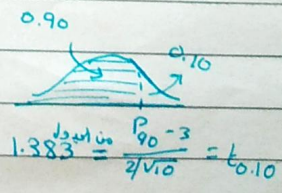 0.90
0.10
1.383 من الجدول = P90 - 3 / 2/√10 = t0.10